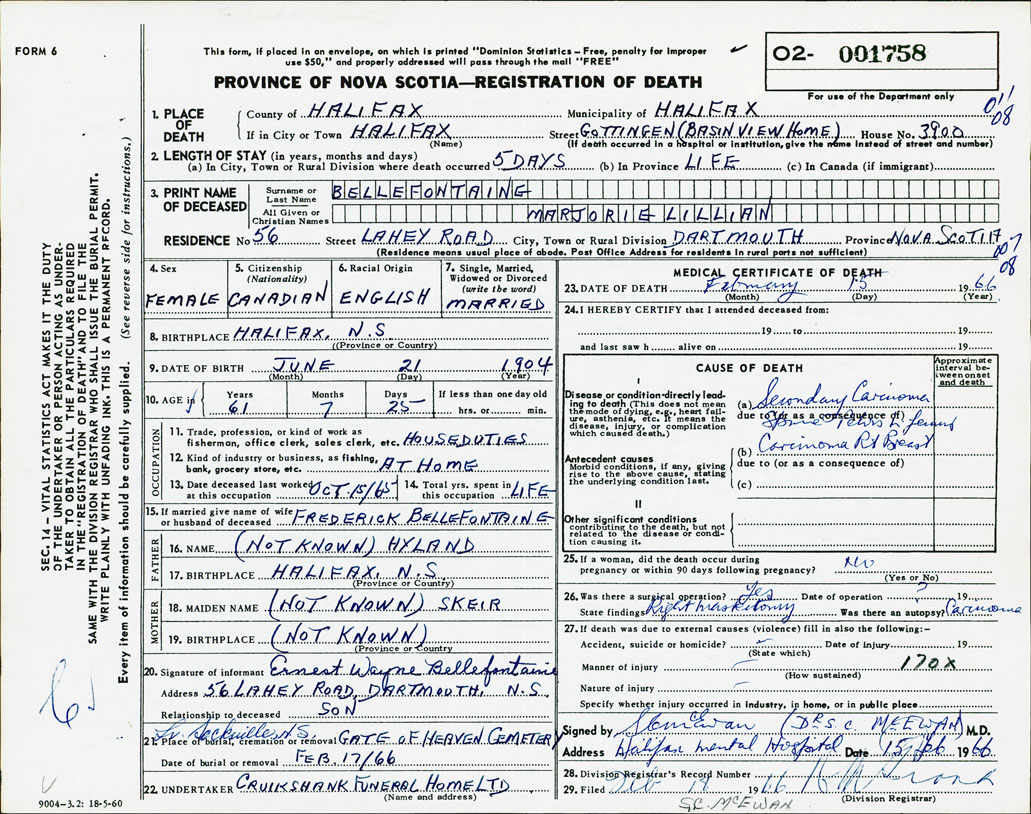 FORM 6
This form, if placed in an envelope, on which is printed "Dominion Statistics – Free, penalty for improper
use $50," and properly addressed will pass through the mail "FREE"
O2- 001758
PROVINCE OF NOVA SCOTIA—REGISTRATION OF DEATH
For use of the Department only
011
08
1. PLACE OF DEATH
County of HALIFAX Municipality of HALIFAX
If in City or Town HALIFAX Street GOTTINGEN (BASIN VIEW HOME) House No. 3900
(Name) (If death occurred in a hospital or institution, give the name instead of street and number)
2. LENGTH OF STAY (in years, months and days)
(a) In City, Town or Rural Division where death occurred 5 DAYS (b) In Province LIFE (c) In Canada (if immigrant)
3. PRINT NAME OF DECEASED
Surname or Last Name BELLEFONTAINE
All Given or Christian Names MARJORIE LILLIAN
RESIDENCE No 56 Street LAHEY ROAD City, Town or Rural Division DARTMOUTH Province NOVA SCOTIA
(Residence means usual place of abode. Post Office Address for residents in rural parts not sufficient)
007
08
4. Sex FEMALE
5. Citizenship (Nationality) CANADIAN
6. Racial Origin ENGLISH
7. Single, Married, Widowed or Divorced (write the word) MARRIED
8. BIRTHPLACE HALIFAX, N.S.
(Province or Country)
9. DATE OF BIRTH JUNE 21 1904
(Month) (Day) (Year)
10. AGE in Years 61 Months 7 Days 25 If less than one day old
hrs. or min.
OCCUPATION
11. Trade, profession, or kind of work as
fisherman, office clerk, sales clerk, etc. HOUSEDUTIES
12. Kind of industry or business, as fishing,
bank, grocery store, etc. AT HOME
13. Date deceased last worked at this occupation OCT. 15/65
14. Total yrs. spent in this occupation LIFE
15. If married give name of wife
or husband of deceased FREDERICK BELLEFONTAINE
FATHER
16. NAME (NOT KNOWN) HYLAND
17. BIRTHPLACE HALIFAX, N.S.
(Province or Country)
MOTHER
18. MAIDEN NAME (NOT KNOWN) SKEIR
19. BIRTHPLACE (NOT KNOWN)
(Province or Country)
20. Signature of informant Ernest Wayne Bellefontaine
Address 56 LAHEY ROAD, DARTMOUTH, N.S.
Relationship to deceased SON
Sackville N.S.
21. Place of burial, cremation or removal GATE OF HEAVEN CEMETERY
Date of burial or removal FEB. 17/66
22. UNDERTAKER CRUIKSHANK FUNERAL HOME LTD
(Name and address)
MEDICAL CERTIFICATE OF DEATH
23. DATE OF DEATH February 15 1966
(Month) (Day) (Year)
24. I HEREBY CERTIFY that I attended deceased from:
19 to 19
and last saw h alive on 19
CAUSE OF DEATH
Approximate interval between onset and death
I
Disease or condition directly leading to death (This does not mean the mode of dying, e.g., heart failure, asthenia, etc. It means the disease, injury, or complication which caused death.)
(a) Secondary Carcinoma
due to (or as a consequence of)
Spine Pelvis L. femur
(b) Carcinoma Rt Breast
due to (or as a consequence of)
(c)
Antecedent causes
Morbid conditions, if any, giving rise to the above cause, stating the underlying condition last.
II
Other significant conditions
contributing to the death, but not related to the disease or condition causing it.
25. If a woman, did the death occur during
pregnancy or within 90 days following pregnancy? No
(Yes or No)
26. Was there a surgical operation? Yes Date of operation ? 19
State findings Right mastectomy Was there an autopsy? Carcinoma
27. If death was due to external causes (violence) fill in also the following:–
Accident, suicide or homicide? – Date of injury 19
(State which)
Manner of injury – 170X
(How sustained)
Nature of injury –
Specify whether injury occurred in industry, in home, or in public place
Signed by S C McEwan (DR S. C. McEWAN) M.D.
Address Halifax Mental Hospital Date 15 Feb 1966
28. Division Registrar's Record Number
29. Filed Feb 19 1966
(Division Registrar)
S.C. McEWAN
SEC. 14 – VITAL STATISTICS ACT MAKES IT THE DUTY
OF THE UNDERTAKER OR PERSON ACTING AS UNDER-
TAKER TO OBTAIN ALL THE PARTICULARS REQUIRED
IN THE "REGISTRATION OF DEATH" AND TO FILE THE
SAME WITH THE DIVISION REGISTRAR WHO SHALL ISSUE THE BURIAL PERMIT.
WRITE PLAINLY WITH UNFADING INK. THIS IS A PERMANENT RECORD.
Every item of information should be carefully supplied. (See reverse side for instructions.)
9004-3.2: 18-5-60